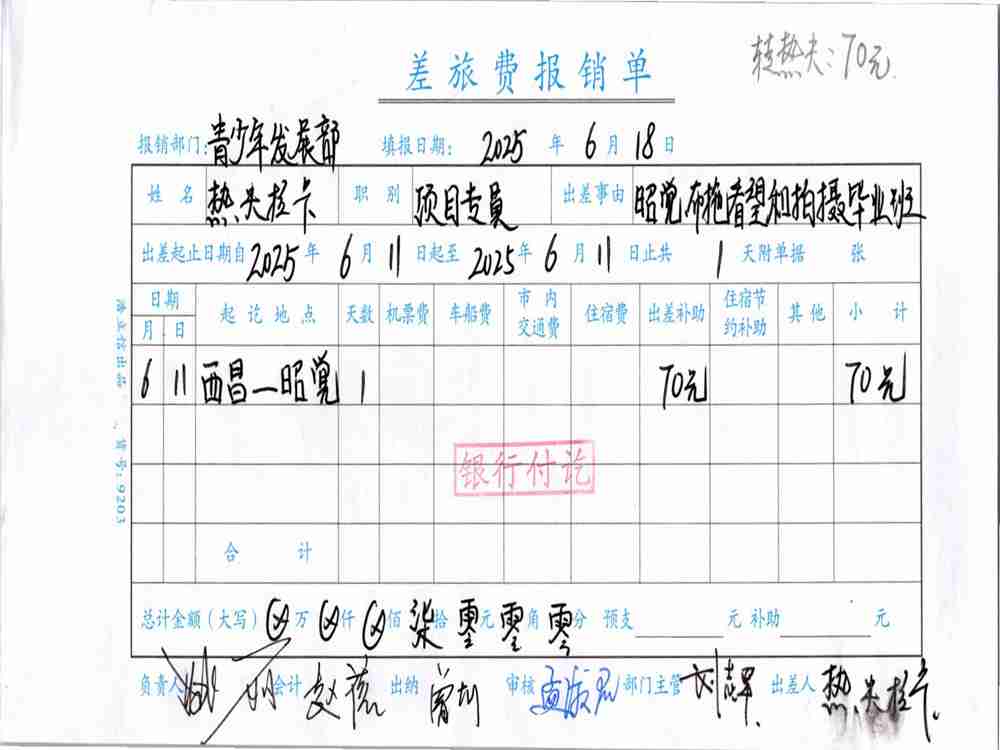 转热夫:70元
差旅费报销单
报销部门:青少年发展部 填报日期: 2025 年 6 月 18 日
姓名 热夫拉卡 职别 项目专员 出差事由 昭觉布拖看望和拍摄毕业班
出差起止日期自 2025 年 6 月 11 日起至 2025 年 6 月 11 日止共 1 天附单据 张
日期 起讫地点 天数 机票费 车船费 市内交通费 住宿费 出差补助 住宿节约补助 其他 小计
月 日
6 11 西昌—昭觉 1 70元 70元
银行付讫
合计
总计金额(大写) ⊗万 ⊗仟 ⊗佰 柒拾 零元 零角 零分 预支 元 补助 元
负责人 会计 出纳 审核 部门主管 出差人 热夫拉卡
货号:9203